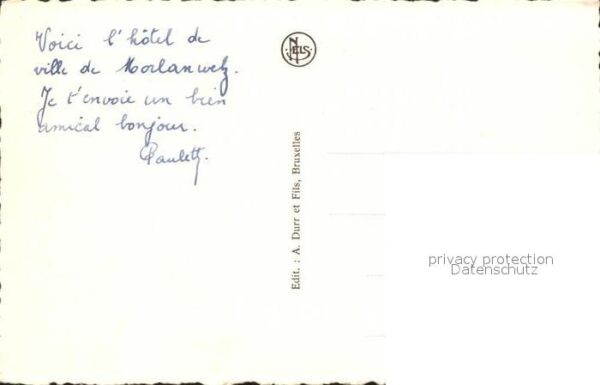 Voici l'hôtel de
ville de Morlanwelz.
Je t'envoie un bien
amical bonjour.
Paulette.
NELS
Edit. : A. Durr et Fils, Bruxelles
privacy protection
Datenschutz